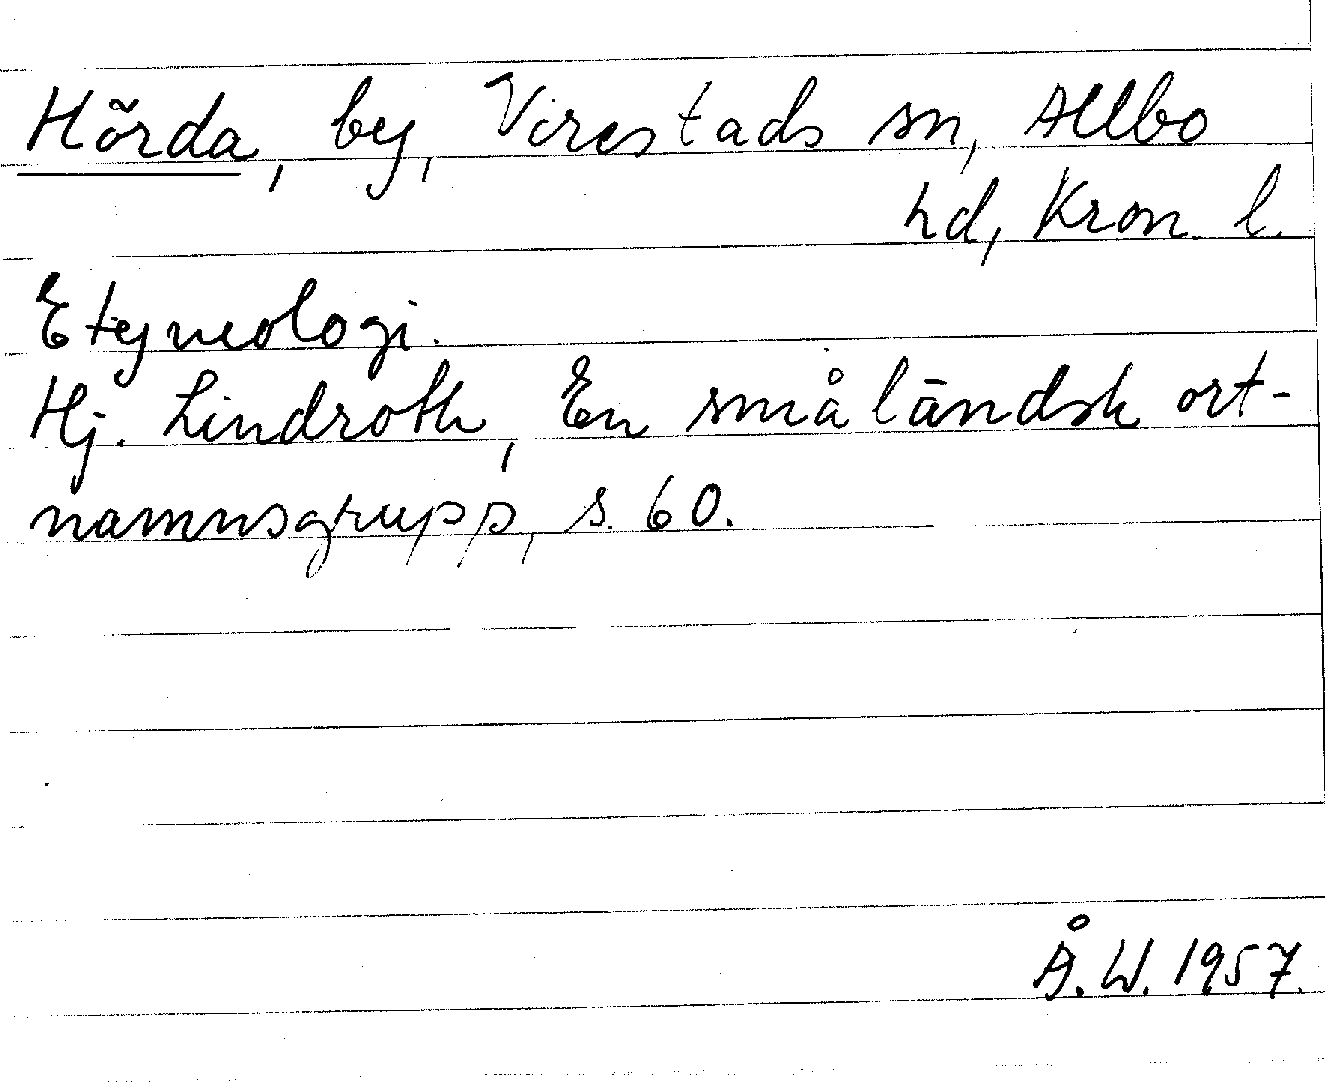 Hörda, by, Virestads sn, Allbo
hd, Kron. l.
Etymologi.
Hj. Lindroth, En småländsk ort-
namnsgrupp, s. 60.
Å. W. 1957.